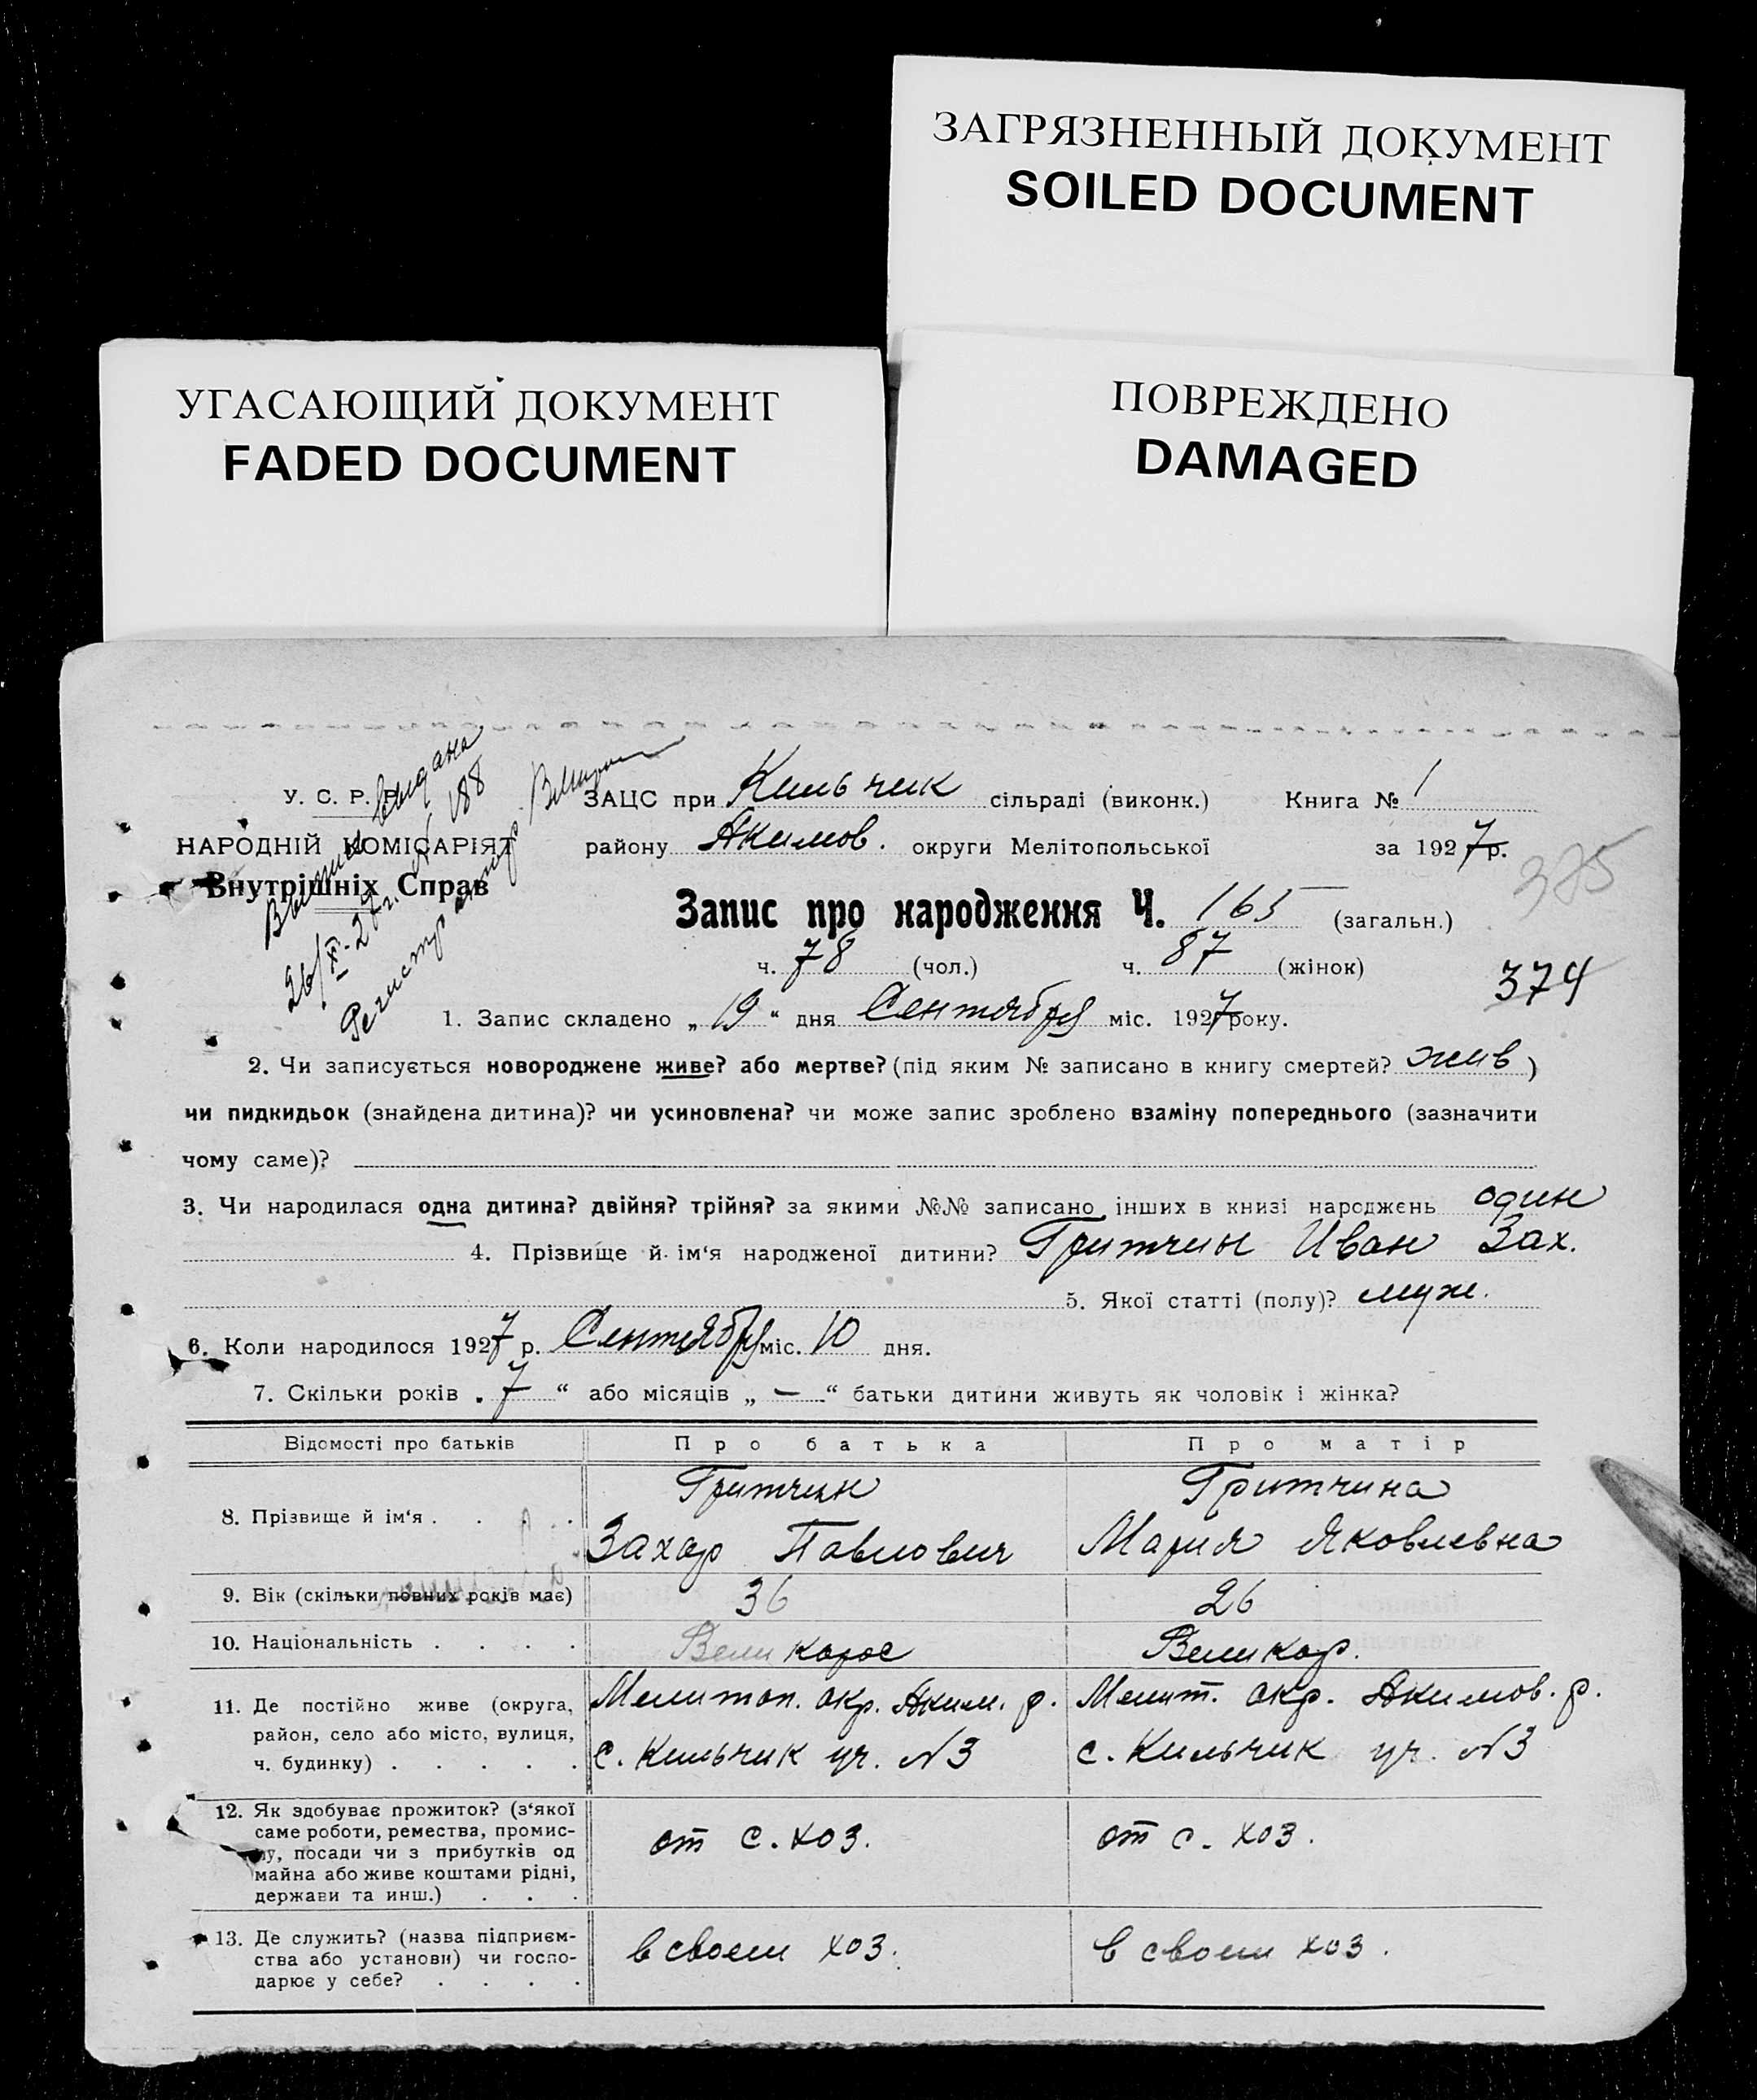 ЗАГРЯЗНЕННЫЙ ДОКУМЕНТ
SOILED DOCUMENT
УГАСАЮЩИЙ ДОКУМЕНТ
FADED DOCUMENT
ПОВРЕЖДЕНО
DAMAGED
У. С. Р. Р.
НАРОДНІЙ КОМІСАРІЯТ
Внутрішніх Справ
Выпись выдана
26/XI-27г. № 188
Регистратор
ЗАЦС при Кильчик сільраді (виконк.) Книга № 1
району Акимов. округи Мелітопольської за 1927 р.
375
Запис про народження Ч. 165 (загальн.)
ч. 78 (чол.) ч. 87 (жінок)
374
1. Запис складено „19“ дня Сентября міс. 1927 року.
2. Чи записується новороджене живе? або мертве? (під яким № записано в книгу смертей? жив)
чи пидкидьок (знайдена дитина)? чи усиновлена? чи може запис зроблено взаміну попереднього (зазначити
чому саме)?
3. Чи народилася одна дитина? двійня? трійня? за якими №№ записано інших в книзі народжень один
4. Прізвище й ім‘я народженої дитини? Гритчин Иван Зах.
5. Якої статті (полу)? муж.
6. Коли народилося 1927 р. Сентября міс. 10 дня.
7. Скільки років „7“ або місяців „—“ батьки дитини живуть як чоловік і жінка?
Відомості про батьків Про батька Про матір
8. Прізвище й ім‘я . . . . Гритчин Гритчина
Захар Павлович Мария Яковлевна
9. Вік (скільки повних років має) 36 26
10. Національність . . . . Великорос Великор.
11. Де постійно живе (округа, Мелитоп. окр. Аким. р. Мелит. окр. Акимов. р.
район, село або місто, вулиця,
ч. будинку) . . . . . с. Кильчик уч. №3 с. Кильчик уч. №3
12. Як здобуває прожиток? (з‘якої
саме роботи, ремества, промис-
лу, посади чи з прибутків од от с. хоз. от с. хоз.
майна або живе коштами рідні,
держави та инш.) . . .
13. Де служить? (назва підприєм-
ства або установи) чи госпо- в своем хоз. в своем хоз.
дарює у себе? . . . .